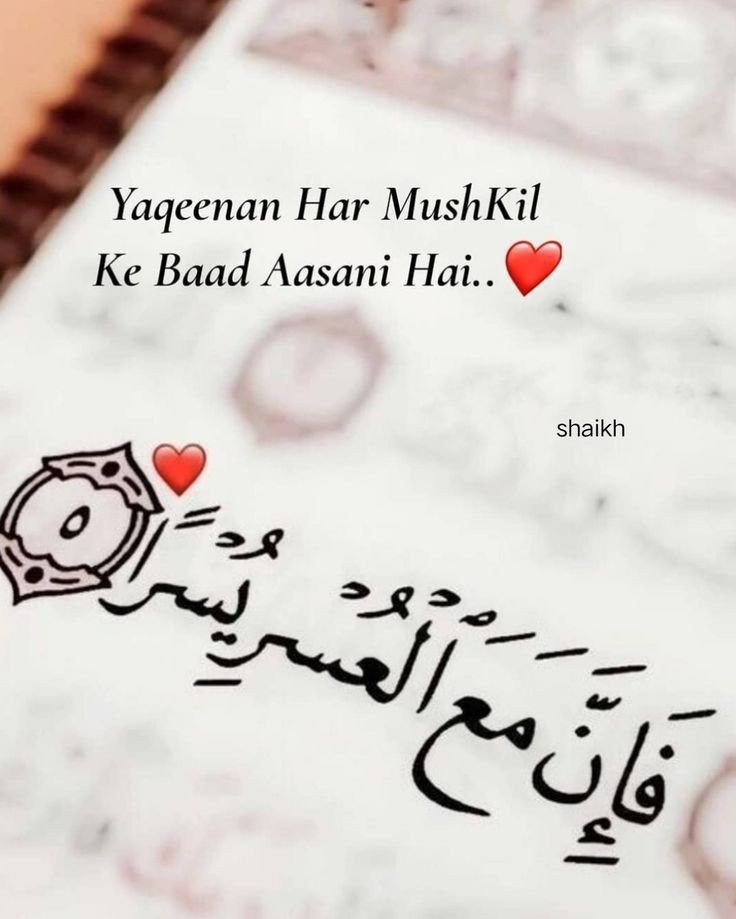 Yaqeenan Har MushKil
Ke Baad Aasani Hai.. ❤️
shaikh
فَإِنَّ مَعَ الْعُسْرِ يُسْرًا ۝٥